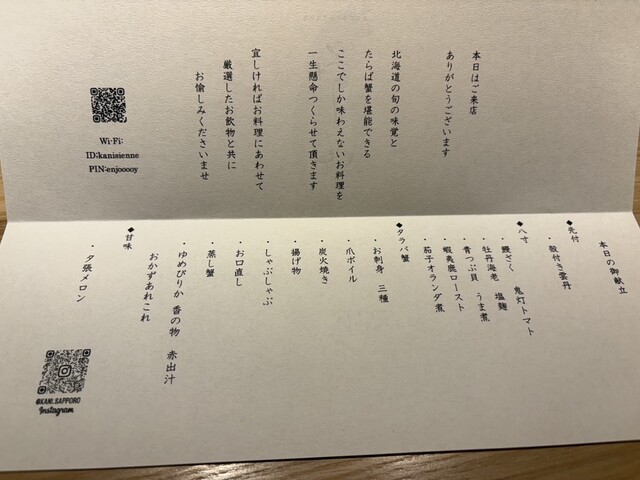 本日はご来店
ありがとうございます
北海道の旬の味覚と
たらば蟹を堪能できる
ここでしか味わえないお料理を
一生懸命つくらせて頂きます
宜しければお料理にあわせて
厳選したお飲物と共に
お愉しみくださいませ
Wi-Fi:
ID:kanisienne
PIN:enjooooy
本日の御献立
◆先付
・殻付き雲丹
◆八寸
・鰻ざく 鬼灯トマト
・牡丹海老 塩麹
・青つぶ貝 うま煮
・蝦夷鹿ロースト
・茄子オランダ煮
◆タラバ蟹
・お刺身 三種
・爪ボイル
・炭火焼き
・揚げ物
・しゃぶしゃぶ
・お口直し
・蒸し蟹
・ゆめぴりか 香の物 赤出汁
おかずあれこれ
◆甘味
・夕張メロン
@KANI.SAPPORO
Instagram